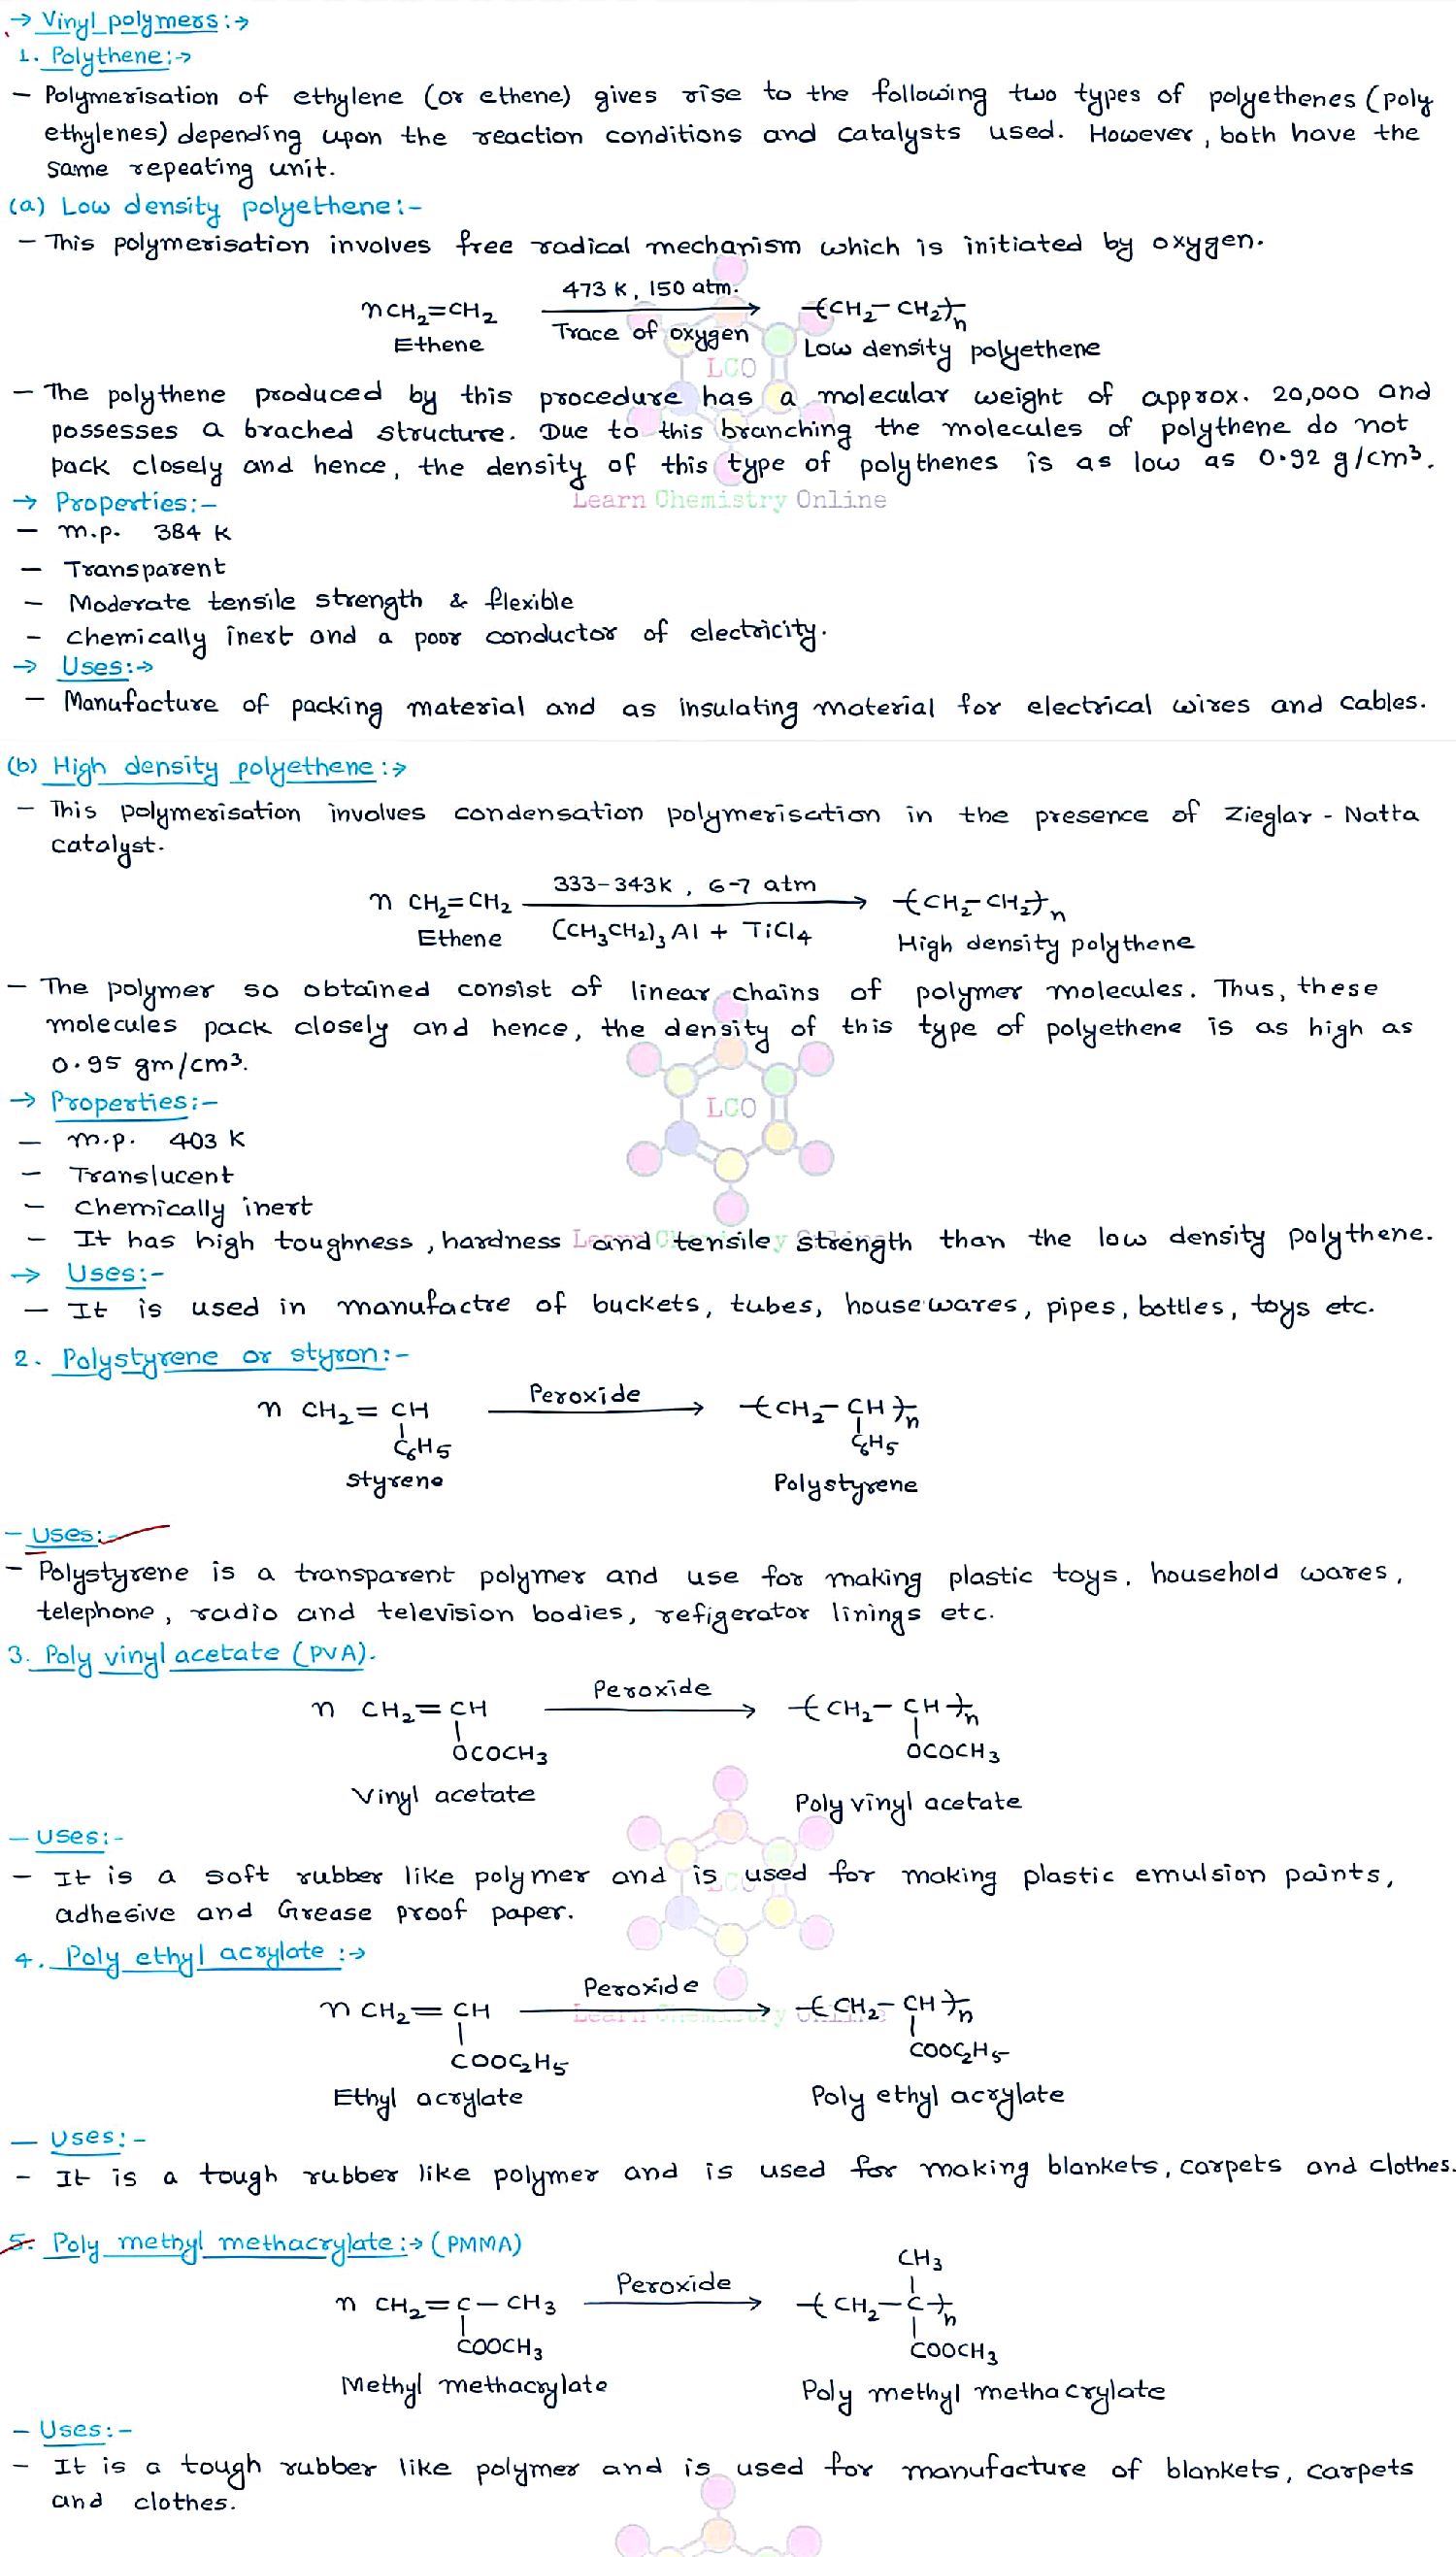 → Vinyl polymers:→
1. Polythene:→
– Polymerisation of ethylene (or ethene) gives rise to the following two types of polyethenes (poly
ethylenes) depending upon the reaction conditions and catalysts used. However, both have the
same repeating unit.
(a) Low density polyethene:-
– This polymerisation involves free radical mechanism which is initiated by oxygen.
473 K, 150 atm.
nCH₂=CH₂ ⟶ -(CH₂-CH₂)-n
Trace of oxygen
Ethene Low density polyethene
LCO
– The polythene produced by this procedure has a molecular weight of approx. 20,000 and
possesses a brached structure. Due to this branching the molecules of polythene do not
pack closely and hence, the density of this type of polythenes is as low as 0.92 g/cm³.
→ Properties:-
Learn Chemistry Online
– m.p. 384 K
– Transparent
– Moderate tensile strength & flexible
– Chemically inert and a poor conductor of electricity.
→ Uses:→
– Manufacture of packing material and as insulating material for electrical wires and cables.
(b) High density polyethene:→
– This polymerisation involves condensation polymerisation in the presence of Zieglar - Natta
catalyst.
333-343K, 6-7 atm
n CH₂=CH₂ ⟶ -(CH₂-CH₂)-n
(CH₃CH₂)₃Al + TiCl₄
Ethene High density polythene
– The polymer so obtained consist of linear chains of polymer molecules. Thus, these
molecules pack closely and hence, the density of this type of polyethene is as high as
0.95 gm/cm³.
→ Properties:-
LCO
– m.p. 403 K
– Translucent
– Chemically inert
– It has high toughness, hardness and tensile strength than the low density polythene.
→ Uses:-
– It is used in manufactre of buckets, tubes, housewares, pipes, bottles, toys etc.
2. Polystyrene or styron:-
Peroxide
n CH₂=CH ⟶ -(CH₂-CH)-n
C₆H₅ C₆H₅
Styrene Polystyrene
– Uses:-
– Polystyrene is a transparent polymer and use for making plastic toys, household wares,
telephone, radio and television bodies, refigerator linings etc.
3. Poly vinyl acetate (PVA).
Peroxide
n CH₂=CH ⟶ -(CH₂-CH)-n
OCOCH₃ OCOCH₃
Vinyl acetate Poly vinyl acetate
– Uses:-
– It is a soft rubber like polymer and is used for making plastic emulsion paints,
adhesive and Grease proof paper.
4. Poly ethyl acrylate:→
Peroxide
n CH₂=CH ⟶ -(CH₂-CH)-n
Learn Chemistry Online
COOC₂H₅ COOC₂H₅
Ethyl acrylate Poly ethyl acrylate
– Uses:-
– It is a tough rubber like polymer and is used for making blankets, carpets and clothes.
5. Poly methyl methacrylate:→ (PMMA)
CH₃
Peroxide
n CH₂=C-CH₃ ⟶ -(CH₂-C)-n
COOCH₃ COOCH₃
Methyl methacrylate Poly methyl methacrylate
– Uses:-
– It is a tough rubber like polymer and is used for manufacture of blankets, carpets
and clothes.